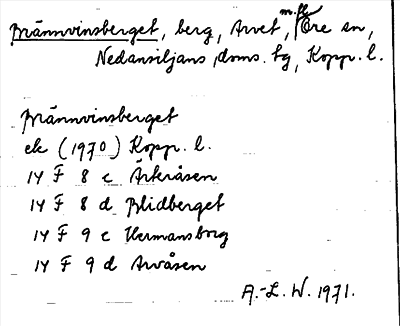 Brännvinsberget, berg, Arvet, m.fl. Ore sn,
Nedansiljans doms. tg, Kopp. l.
Brännvinsberget
ek (1970) Kopp. l.
14 F 8 c Ärteråsen
14 F 8 d Blidberget
14 F 9 c Hermansborg
14 F 9 d Arvåsen
A.-L. W. 1971.